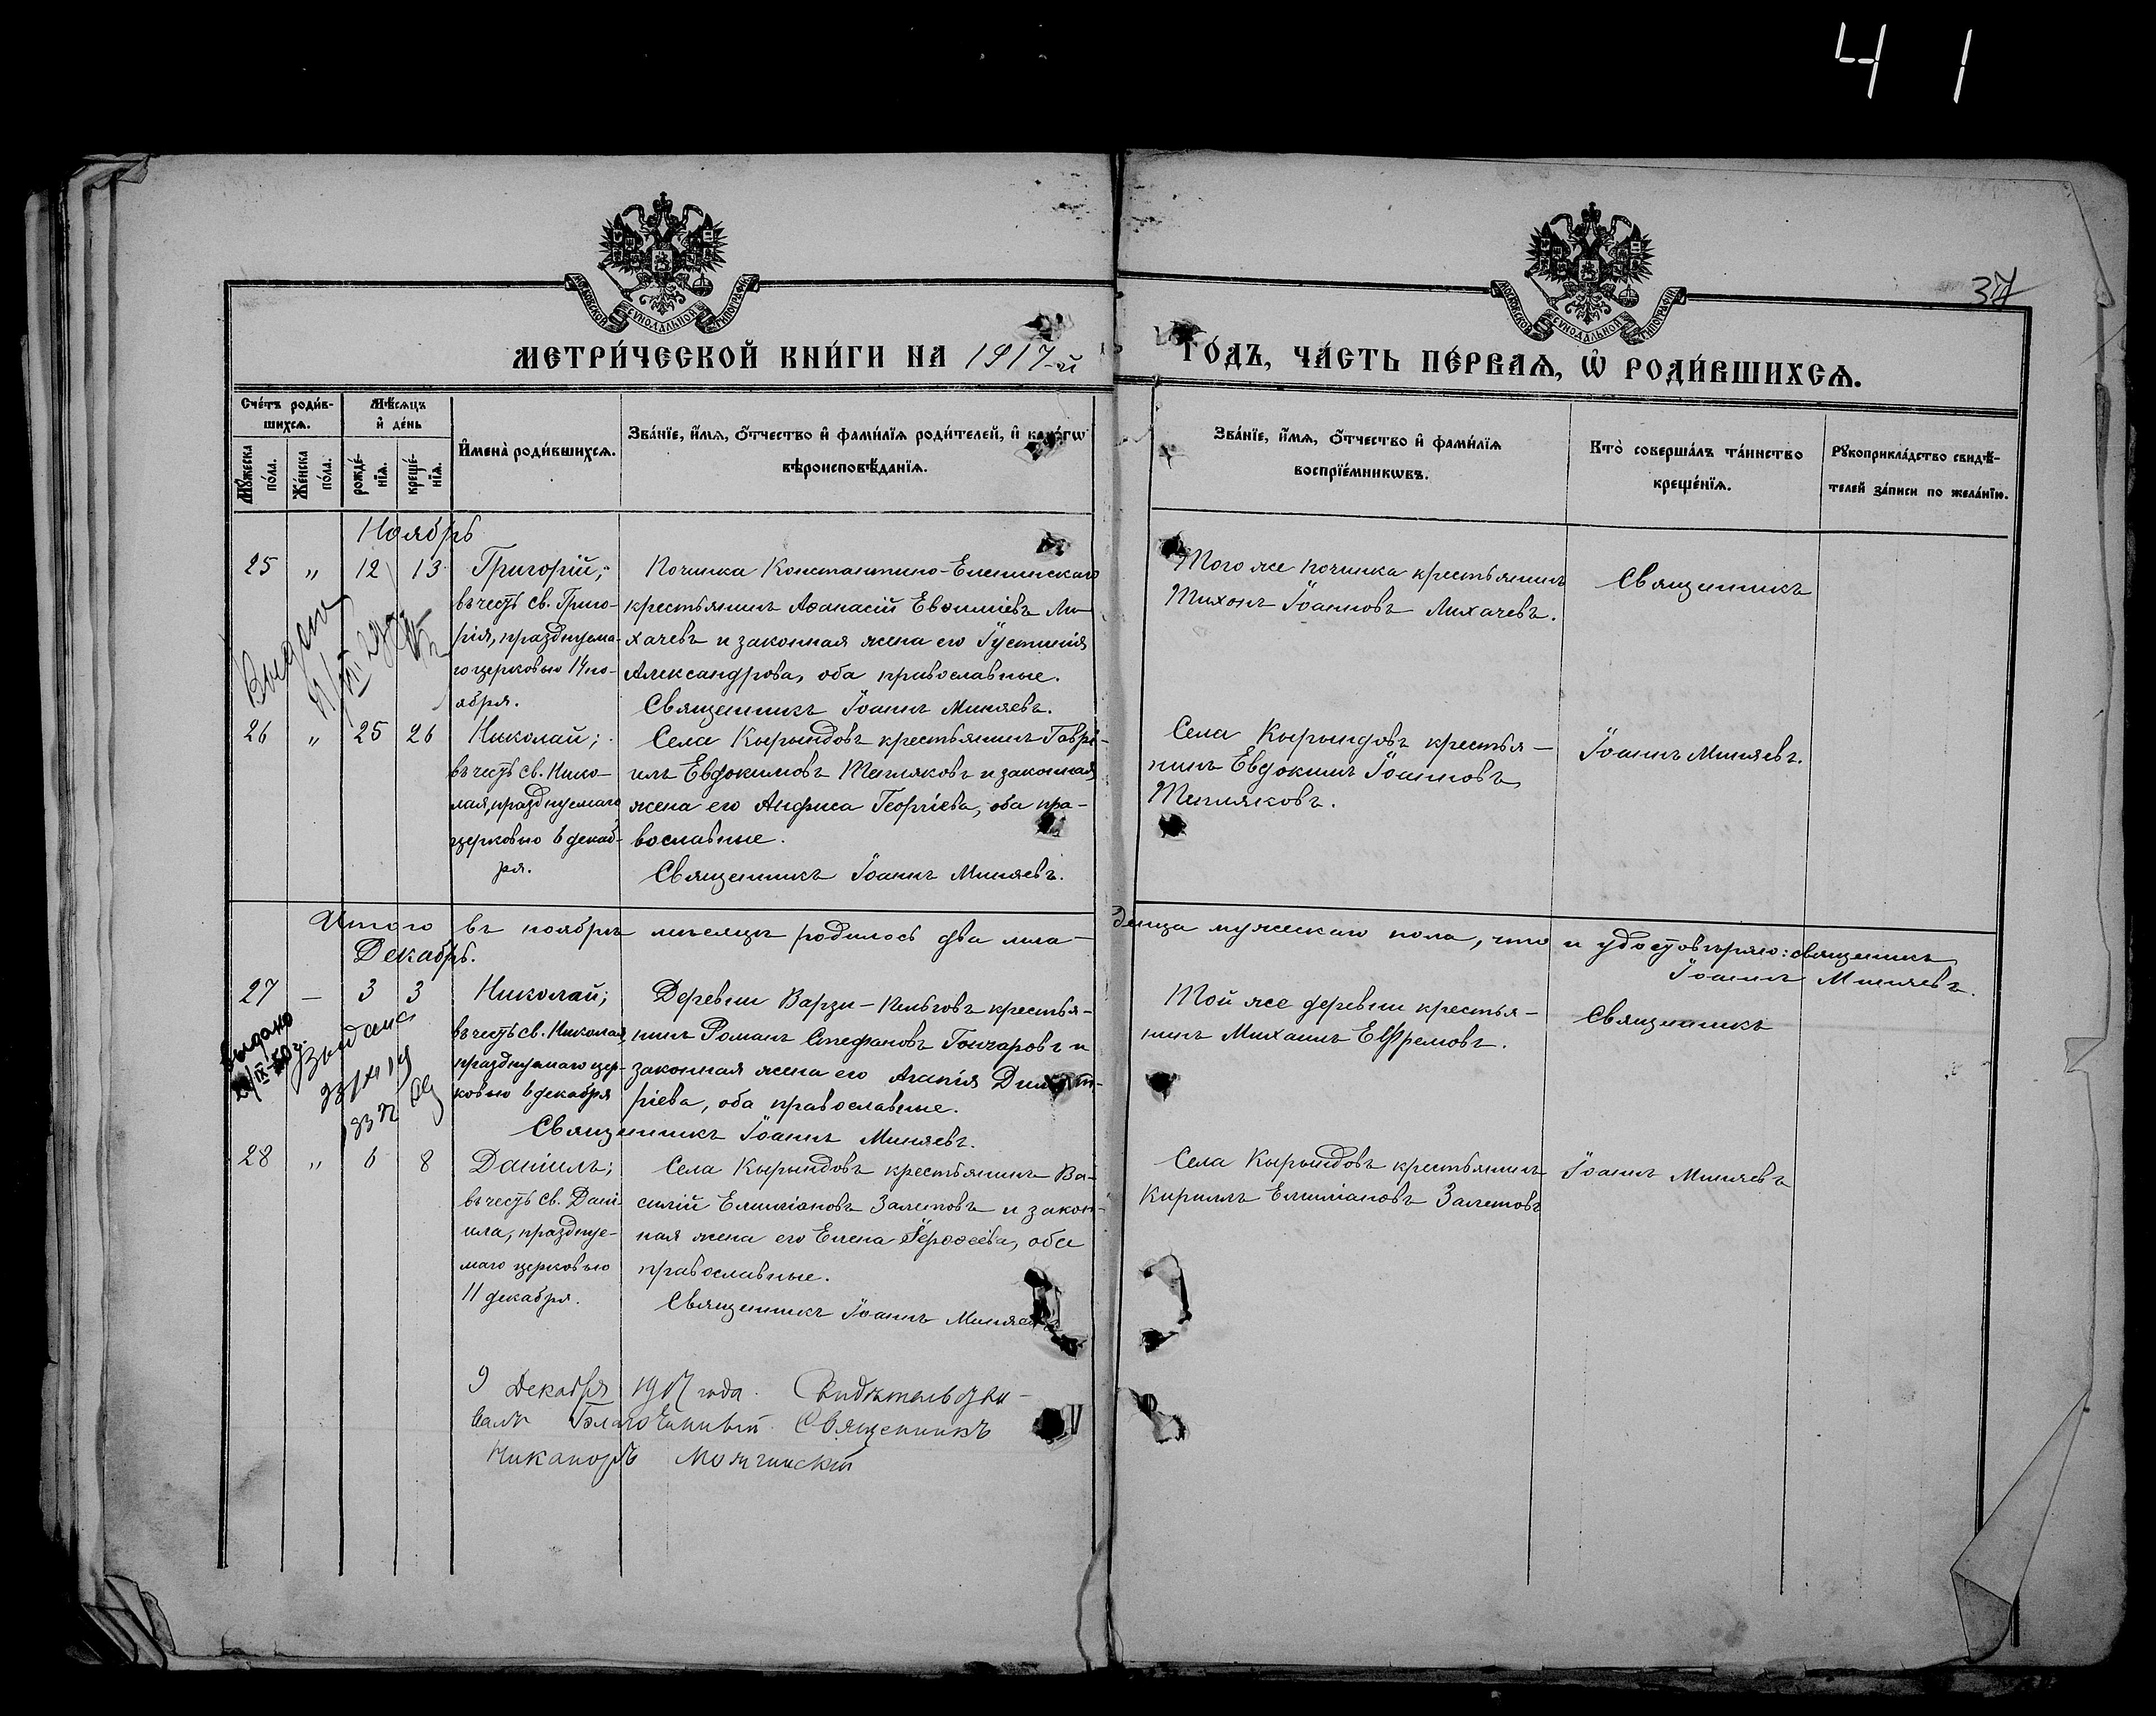 4 1
37
МОСКОВСКОЙ СѴНОДАЛЬНОЙ ТИПОГРАФІИ
МОСКОВСКОЙ СѴНОДАЛЬНОЙ ТИПОГРАФІИ
МЕТРИ́ЧЕСКОЙ КНИ́ГИ НА 1917-й ГО́ДЪ, ЧА́СТЬ ПЕ́РВАѦ, Ѡ҆ РОДИ́ВШИХСѦ.
Сче́тъ роди́в-
шихсѧ.
Мꙋ́жеска по́ла.
Же́нска по́ла.
Мѣ́сѧцъ и҆ де́нь
рожде́-
нїѧ.
креще́-
нїѧ.
И҆мена̀ роди́вшихсѧ.
Зва́нїе, и҆́мѧ, ѻ҆́тчество и҆ фами́лїѧ роди́телей, и҆ како́гѡ
вѣроисповѣ́данїѧ.
Зва́нїе, и҆́мѧ, ѻ҆́тчество и҆ фами́лїѧ
воспрїе́мникѡвъ.
Кто̀ соверша́лъ та́инство
креще́нїѧ.
Рꙋкоприкла́дство свидѣ́-
телей за́писи по жела́нїю.
Ноябрь
25 " 12 13
Григорій;
въ честь св. Григо-
рія, празднуема-
го церковью 14 но-
ября.
Починка Константино-Еленинскаго
крестьянинъ Аѳанасій Евѳиміевъ Ли-
хачевъ и законная жена его Іустинія
Александрова, оба православные.
Священникъ Іоаннъ Миняевъ.
Того же починка крестьянинъ
Тихонъ Іоанновъ Лихачевъ.
Священникъ
26 " 25 26
Николай;
въ честь св. Нико-
лая, празднуемаго
церковью 6 декаб-
ря.
Села Кырындовъ крестьянинъ Гаврі-
илъ Евдокимовъ Тепляковъ и законная
жена его Анфиса Георгіева, оба пра-
вославные.
Священникъ Іоаннъ Миняевъ.
Села Кырындовъ крестья-
нинъ Евдокимъ Іоанновъ
Тепляковъ.
Іоаннъ Миняевъ.
Итого въ ноябрѣ мѣсяцѣ родилось два мла-
денца мужескаго пола, что и удостовѣряю: священникъ
Іоаннъ Миняевъ.
Декабрь.
27 — 3 3
Выдано
Выдана
Николай;
въ честь св. Николая,
празднуемаго цер-
ковью 6 декабря
Деревни Варзи-Пельговъ крестья-
нинъ Романъ Стефановъ Гончаровъ и
законная жена его Агапія Димит-
ріева, оба православные.
Священникъ Іоаннъ Миняевъ.
Той же деревни крестья-
нинъ Михаилъ Ефремовъ.
Священникъ
28 " 6 8
Даніилъ;
въ честь св. Дані-
ила, праздну-
емаго церковью
11 декабря.
Села Кырындовъ крестьянинъ Ва-
силій Емиліановъ Залетовъ и закон-
ная жена его Елена Іероѳеева, оба
православные.
Священникъ Іоаннъ Миняевъ
Села Кырындовъ крестьянинъ
Кириллъ Емиліановъ Залетовъ
Іоаннъ Миняевъ
9 Декабря 1917 года. Свидѣтельство-
валъ Благочинный Священникъ
Никаноръ